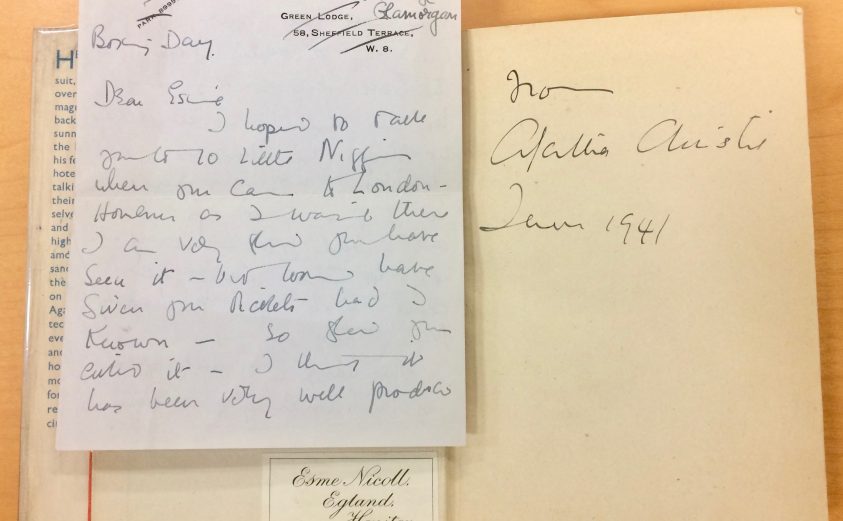 H
suit,
over
mag
back
sunn
the
his fe
hote
talki
their
selve
and
high
amd
sand
the
on
Aga
tec
eve
and
ho
mo
for
re
ci
Green Lodge, Glamorgan
58, Sheffield Terrace,
W. 8.
Boxing Day.
Dear Esme
I hoped to take
you to 10 Little Niggers
when you came to London -
However as I wasn't there
I am very glad you have
seen it - but would have
given you tickets had I
known - So glad you
it - I think it
has been very well produced
Esme Nicoll.
Egland.
Honiton
from
Agatha Christie
June 1941